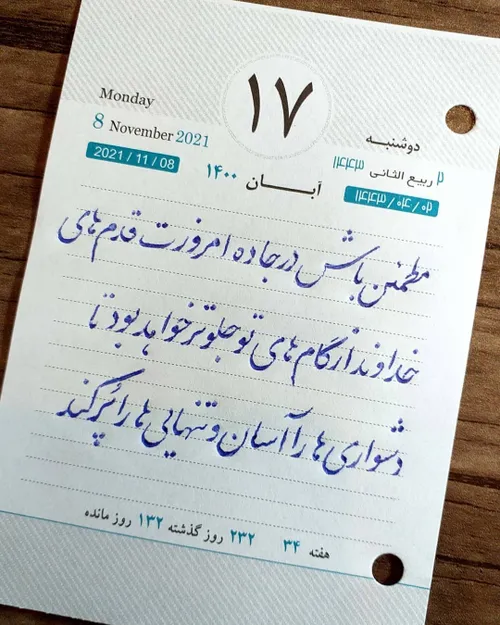 ۱۷
Monday
دوشنبه
8 November 2021
2021 / 11 / 08
۲ ربیع الثانی ۱۴۴۳
۱۴۴۳ / ۰۴ / ۰۲
آبـــان ۱۴۰۰
مطمئن باش در جاده امروزت قدم‌های
خداوند از گام های تو جلوتر خواهد بود تا
دشواری ها را آسان و تنهایی ها را پُر کند
هفته ۳۴ ۲۳۲ روز گذشته ۱۳۲ روز مانده